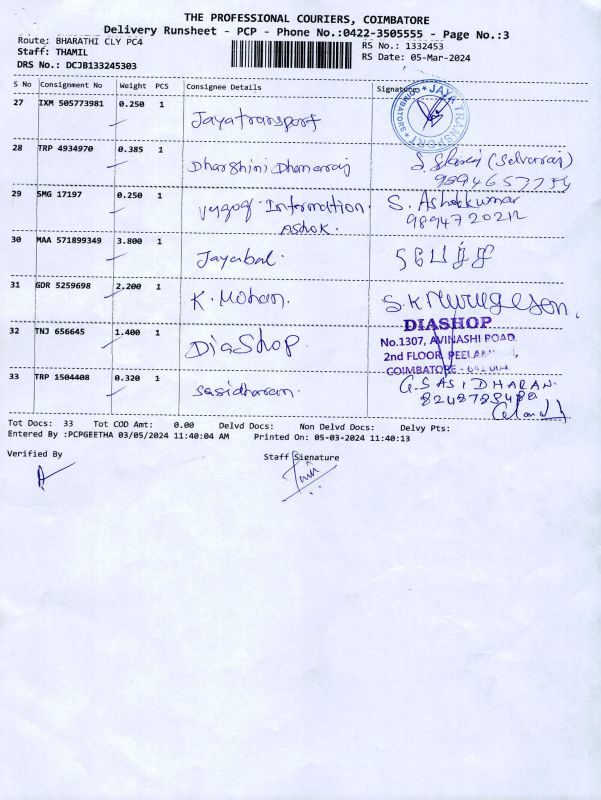 THE PROFESSIONAL COURIERS, COIMBATORE
Delivery Runsheet - PCP - Phone No.:0422-3505555 - Page No.:3
Route: BHARATHI CLY PC4 RS No.: 1332453
Staff: THAMIL RS Date: 05-Mar-2024
DRS No.: DCJB133245303
S No Consignment No Weight PCS Consignee Details Signature
27 IXM 505773981 0.250 1 Jayatransport
JAYA TRANSPORT COIMBATORE
28 TRP 4934970 0.385 1 Dharshini Dhanaraj (Selvaraj)
29 SMG 17197 0.250 1 Information S. Ashokkumar
ASHOK.
30 MAA 571899349 3.800 1 Jayabal.
31 GDR 5259698 2.200 1 K. Mohan. S.K Murugesan.
32 TNJ 656645 1.400 1 DiaShop. DIASHOP
No.1307, AVINASHI ROAD,
2nd FLOOR,
COIMBATORE
33 TRP 1504408 0.320 1 Sasidharan. G. SASIDHARAN.
Tot Docs: 33 Tot COD Amt: 0.00 Delvd Docs: Non Delvd Docs: Delvy Pts:
Entered By :PCPGEETHA 03/05/2024 11:40:04 AM Printed On: 05-03-2024 11:40:13
Verified By Staff Signature